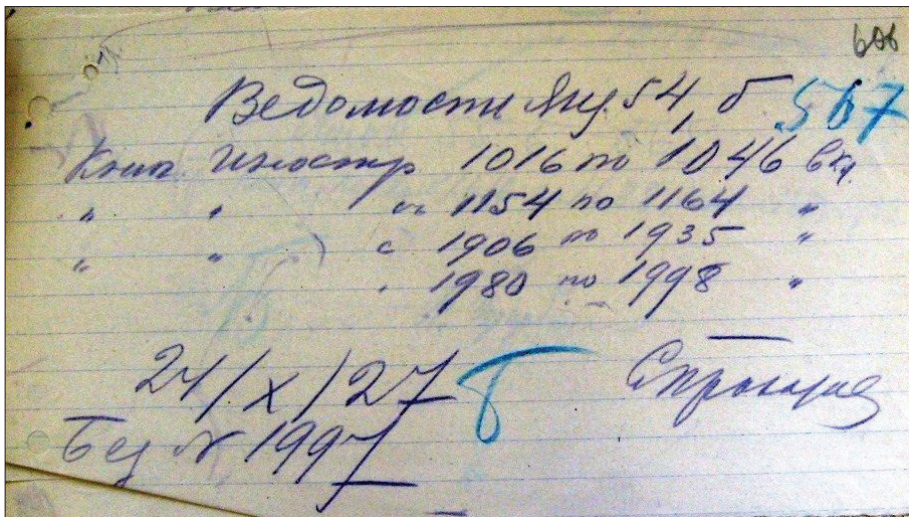 606
Ведомости 54, б 567
Книг Иностр 1016 по 1046 вкл.
" " 1154 по 1164 "
" " с 1906 по 1935 "
1980 по 1998 "
24/X/27 б
Без № 1997